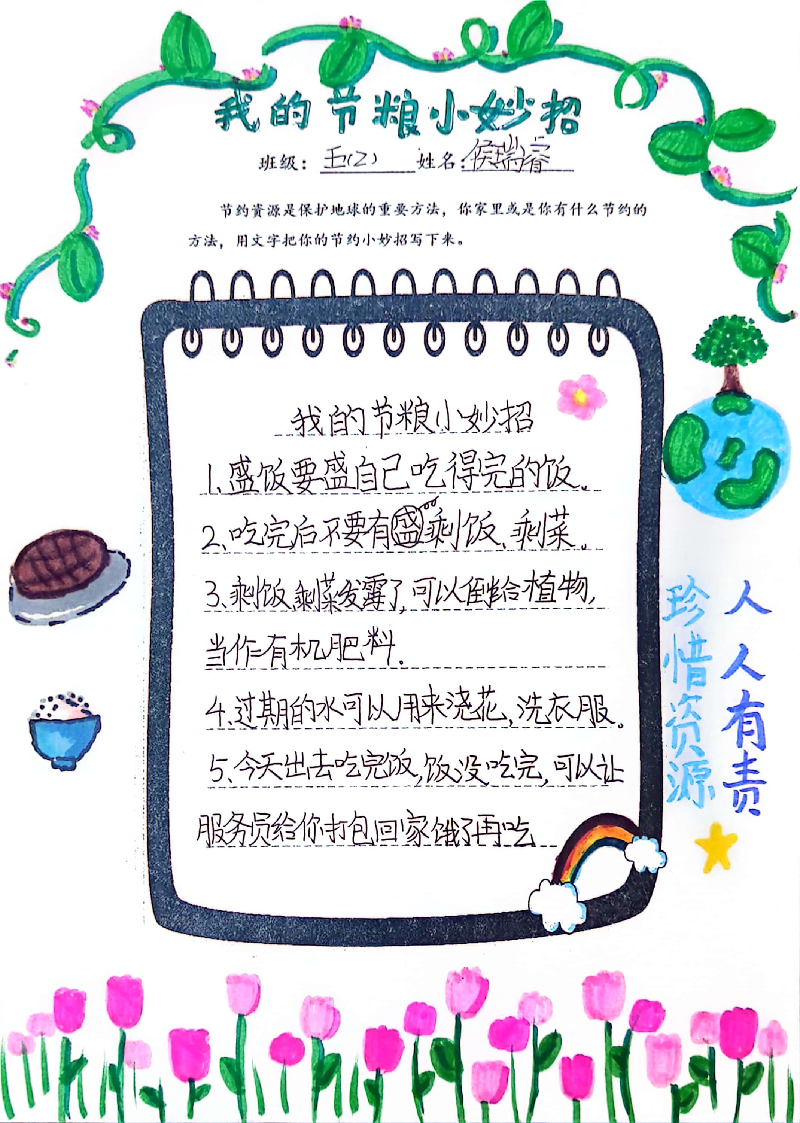 我的节粮小妙招
班级：五(2) 姓名：侯瑞睿
节约资源是保护地球的重要方法，你家里或是你有什么节约的
方法，用文字把你的节约小妙招写下来。
我的节粮小妙招
1、盛饭要盛自己吃得完的饭。
2、吃完后不要有剩饭、剩菜。
3、剩饭剩菜发霉了,可以倒给植物,
当作有机肥料.
4、过期的水可以用来浇花,洗衣服。
5、今天出去吃完饭,饭没吃完,可以让
服务员给你打包回家饿了再吃
珍惜资源
人人有责